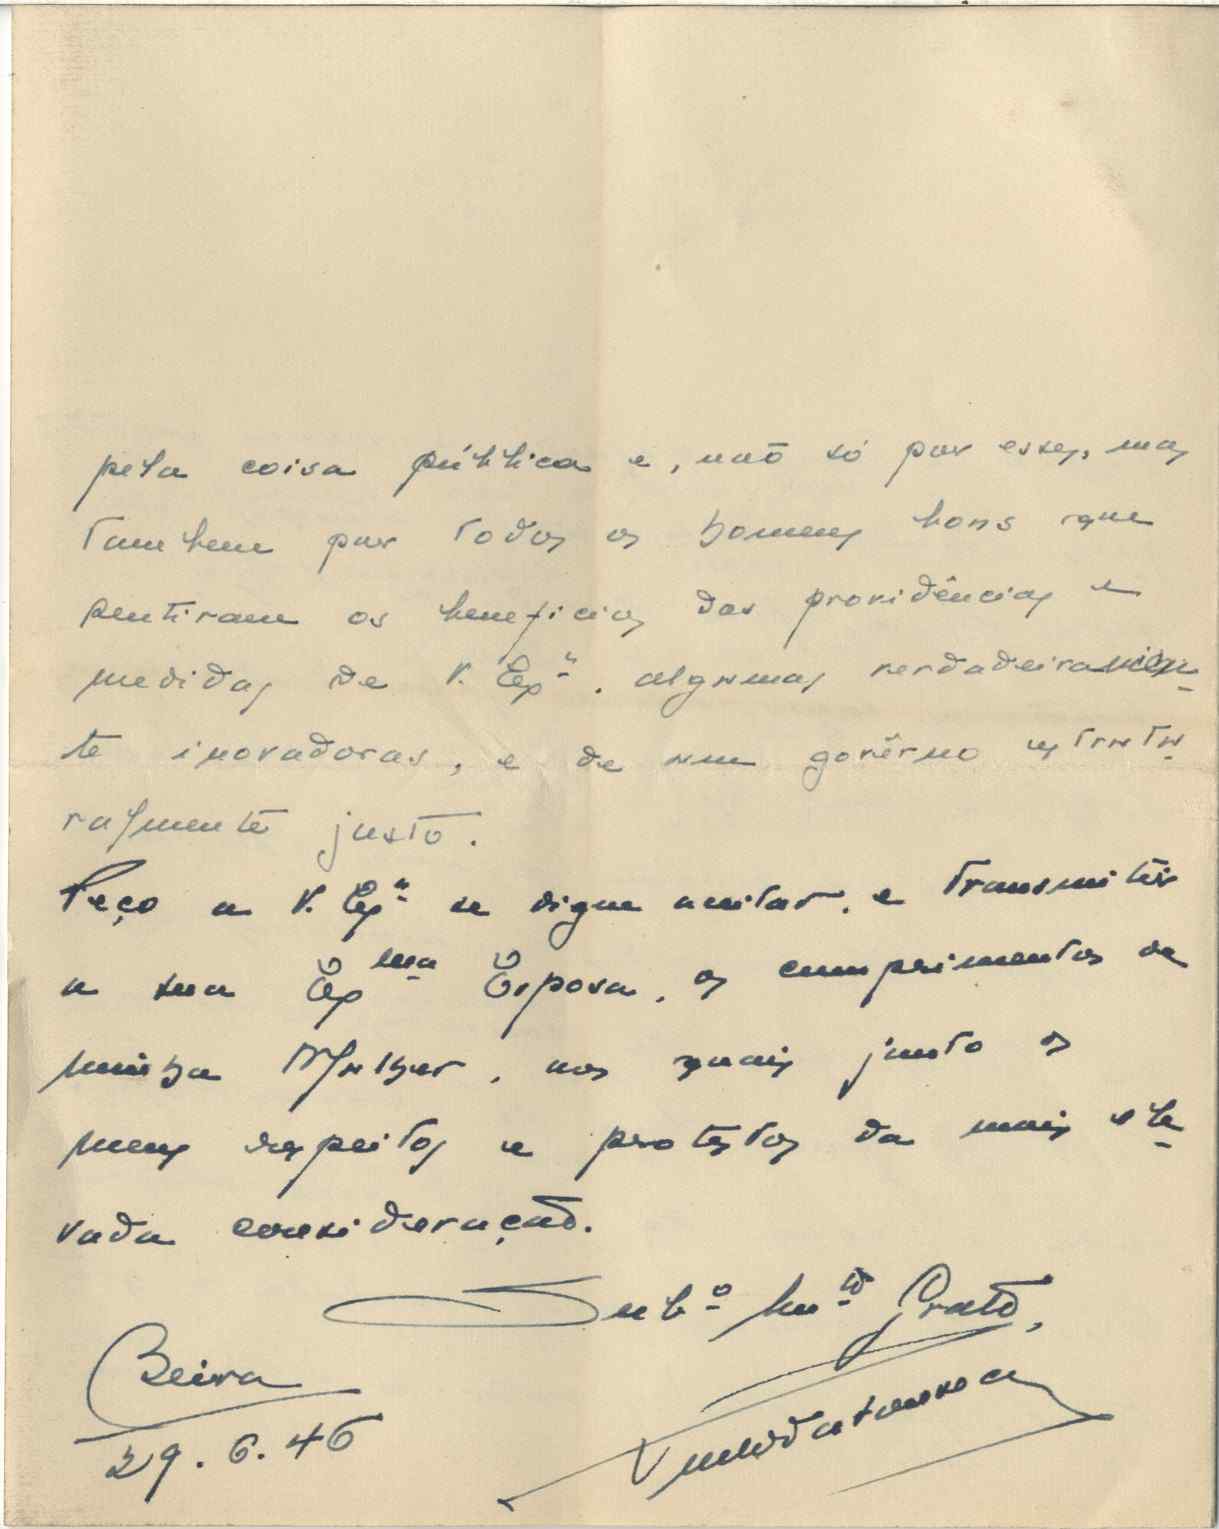 pela coisa pública e, não só por esses, mas
tambem por todos os homens bons que
sentiram os beneficios das providências e
medidas de V. Exª. algumas verdadeiramen-
te inovadoras, e de um govêrno estrutu-
ralmente justo.
Peço a V. Exª se digne aceitar, e transmitir
a sua Exma Esposa, os cumprimentos de
minha Mulher, aos quais junto os
meus respeitos e protestos da mais ele-
vada consideração.
Subº muitº Grato,
Beira
29.6.46